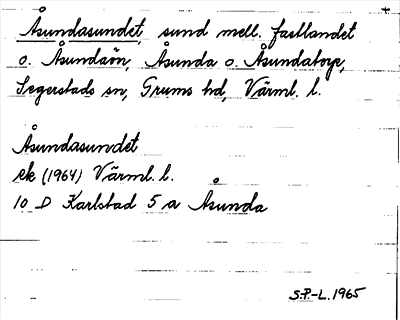 Åsundasundet, sund mell. fastlandet
o. Åsundaön, Åsunda o. Åsundatorp,
Segerstads sn, Grums hd, Värml. l.
Åsundasundet
ek (1964) Värml. l.
10 D Karlstad 5 a Åsunda
S.P.-L. 1965